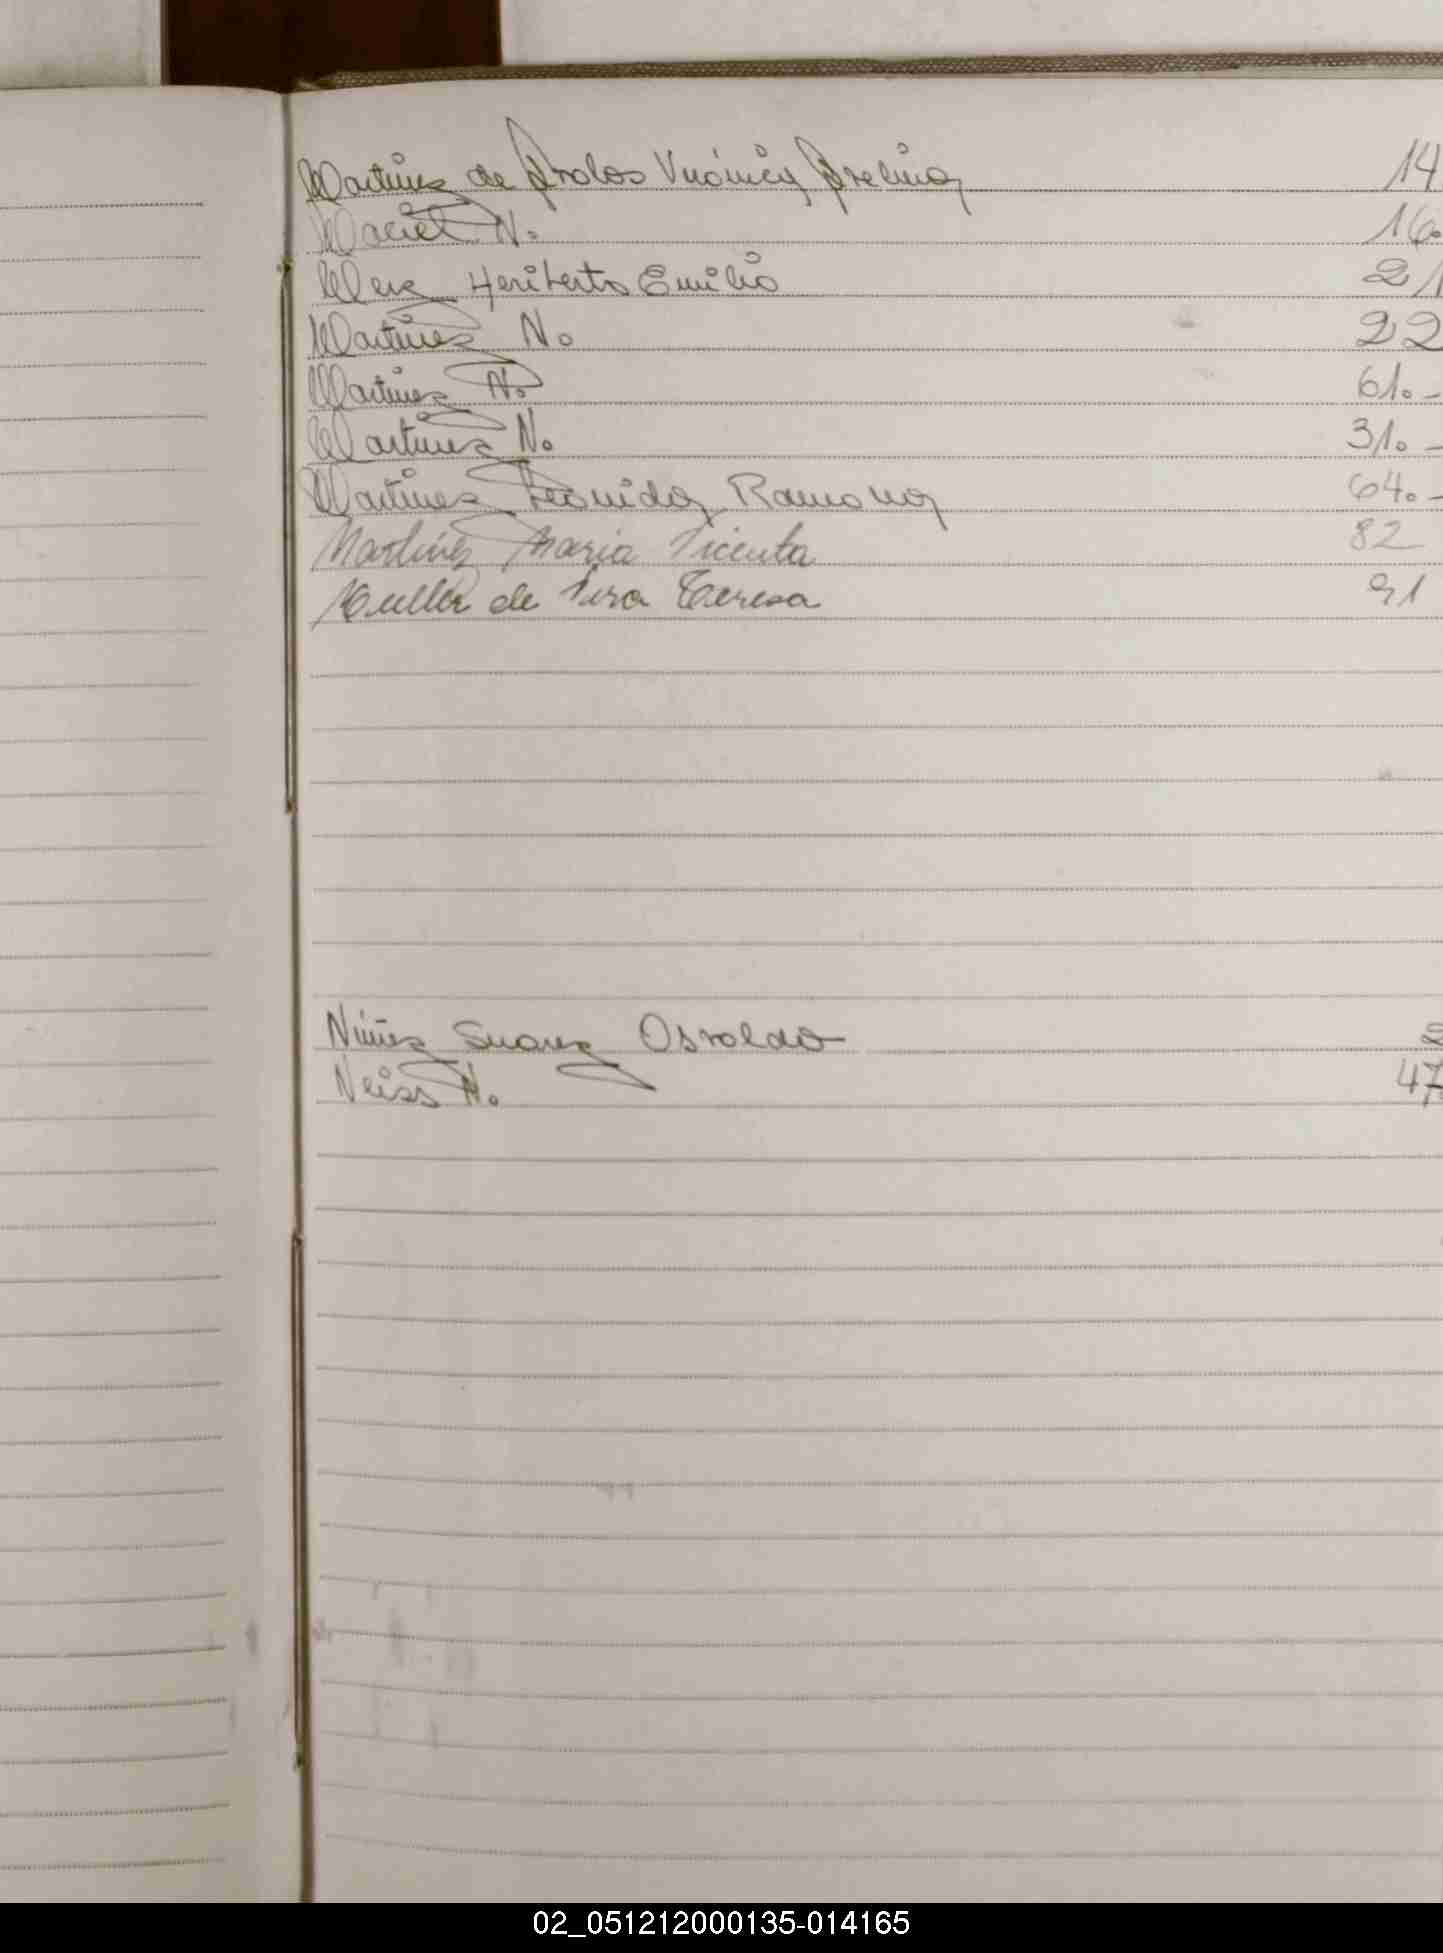 Martinez de Avalos Verónica Avelina 14
Maciel N. 16.
Mez Heriberto Emilio 21
Martinez N. 22
Martinez N. 61.-
Martinez N. 31.-
Martinez Leonida Ramona 64.-
Martinez Maria Vicenta 82
Muller de Vera Teresa 91
Núñez Suarez Osvaldo 2
Neiss N. 47
02_051212000135-014165